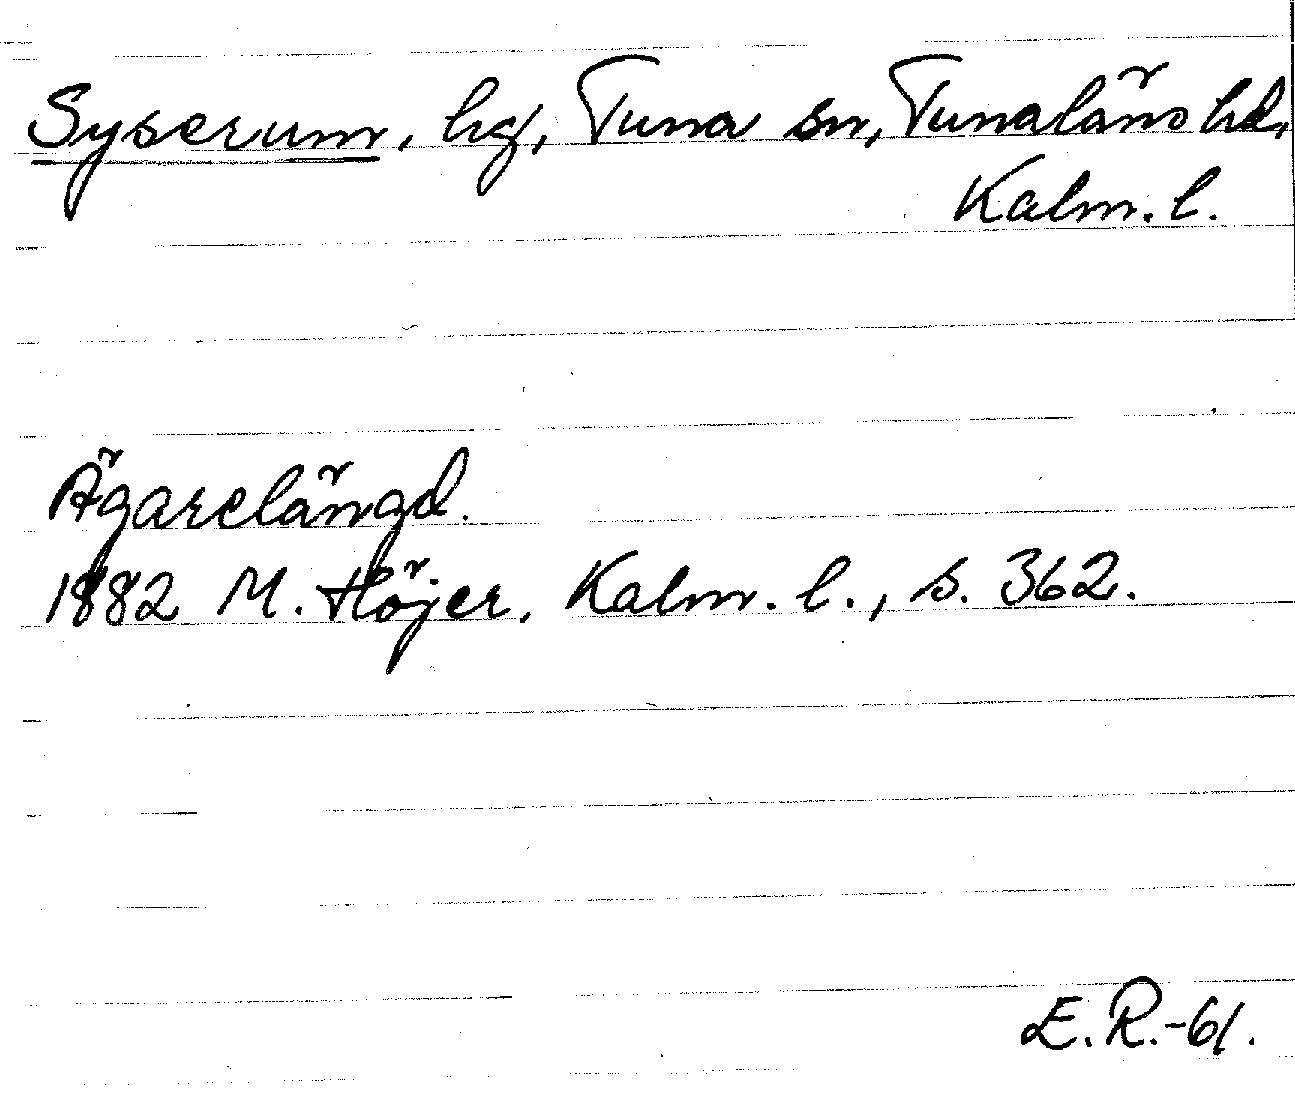 Syserum, hg, Tuna sn, Tunaläns hd,
Kalm. l.
Ägarelängd.
1882 M. Höjer, Kalm. l., s. 362.
E. R.-61.